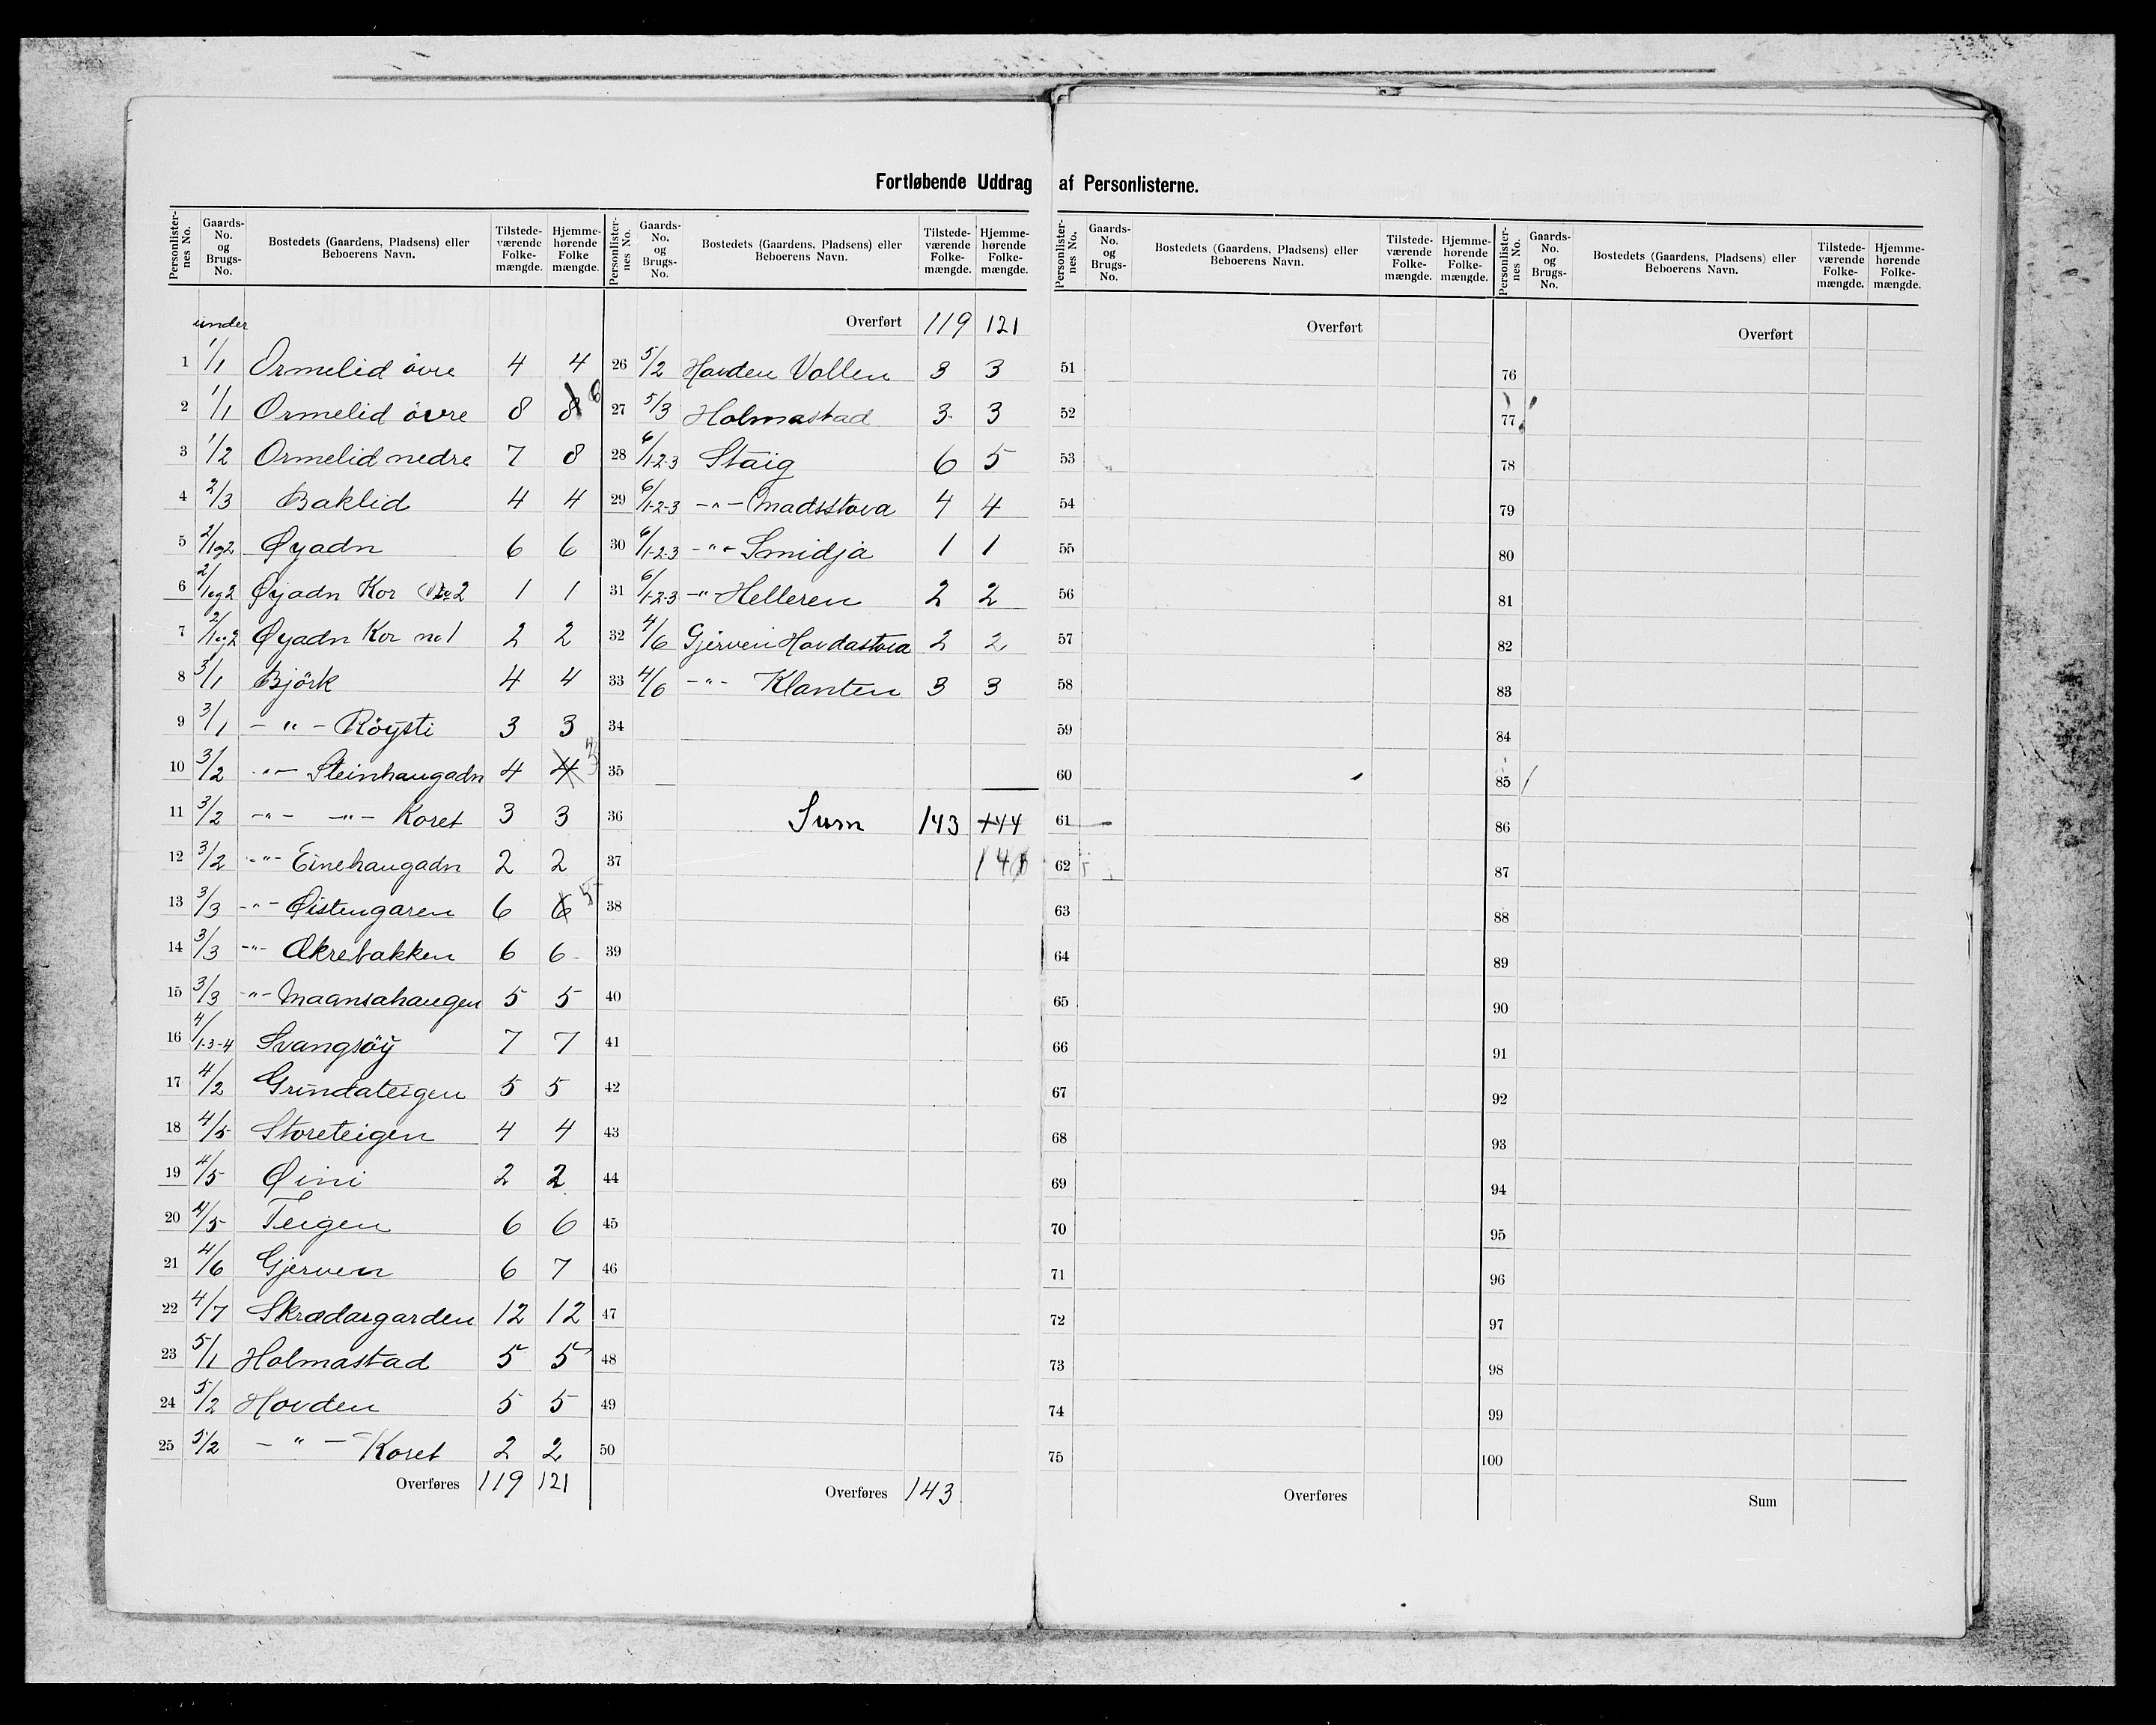 Fortløbende Uddrag af Personlisterne.
Personlister-nes No. | Gaards-No. og Brugs-No. | Bostedets (Gaardens, Pladsens) eller Beboerens Navn. | Tilstede-værende Folke-mængde. | Hjemme-hørende Folke mængde.
under
1 1/1 Ormelid övre 4 4
2 1/1 Ormelid övre 8 8 6
3 1/2 Ormelid nedre 7 8
4 2/3 Baklid 4 4
5 2/1og2 Øyadn 6 6
6 2/1og2 Øyadn Kor No 2 1 1
7 2/1og2 Øyadn Kor no 1 2 2
8 3/1 Björk 4 4
9 3/1 - " - Röysti 3 3
10 3/2 - " - Steinhaugadn 4 4
11 3/2 - " - - " - Koret 3 3
12 3/2 - " - Einehaugadn 2 2
13 3/3 - " - Øistengaren 6 6 5
14 3/3 - " - Økrebakken 6 6
15 3/3 - " - Maansahaugen 5 5
16 4/1-3-4 Svangsöy 7 7
17 4/2 Grindateigen 5 5
18 4/5 Storeteigen 4 4
19 4/5 Øini 2 2
20 4/5 Teigen 6 6
21 4/6 Gjerven 6 7
22 4/7 Skrædargarden 12 12
23 5/1 Holmastad 5 5
24 5/2 Hovden 5 5
25 5/2 - " - Koret 2 2
Overføres 119 121
Personlister-nes No. | Gaards-No. og Brugs-No. | Bostedets (Gaardens, Pladsens) eller Beboerens Navn. | Tilstede-værende Folke-mængde. | Hjemme-hørende Folke-mængde.
Overført 119 121
26 5/2 Hovden Vollen 3 3
27 5/3 Holmastad 3 3
28 6/1-2-3 Staig 6 5
29 6/1-2-3 - " - Madsstova 4 4
30 6/1-2-3 - " - Smidja 1 1
31 6/1-2-3 - " - Helleren 2 2
32 4/6 Gjerven Hovdastova 2 2
33 4/6 - " - Klanten 3 3
34
35
36 Sum 143 144
37
38
39
40
41
42
43
44
45
46
47
48
49
50
Overføres 143
Personlister-nes No. | Gaards-No. og Brugs-No. | Bostedets (Gaardens, Pladsens) eller Beboerens Navn. | Tilstede-værende Folke-mængde. | Hjemme-hørende Folke-mængde.
Overført
51
52
53
54
55
56
57
58
59
60
61
62
63
64
65
66
67
68
69
70
71
72
73
74
75
Overføres
Personlister-nes No. | Gaards-No. og Brugs-No. | Bostedets (Gaardens, Pladsens) eller Beboerens Navn. | Tilstede-værende Folke-mængde. | Hjemme-hørende Folke-mængde.
Overført
76
77
78
79
80
81
82
83
84
85
86
87
88
89
90
91
92
93
94
95
96
97
98
99
100
Sum